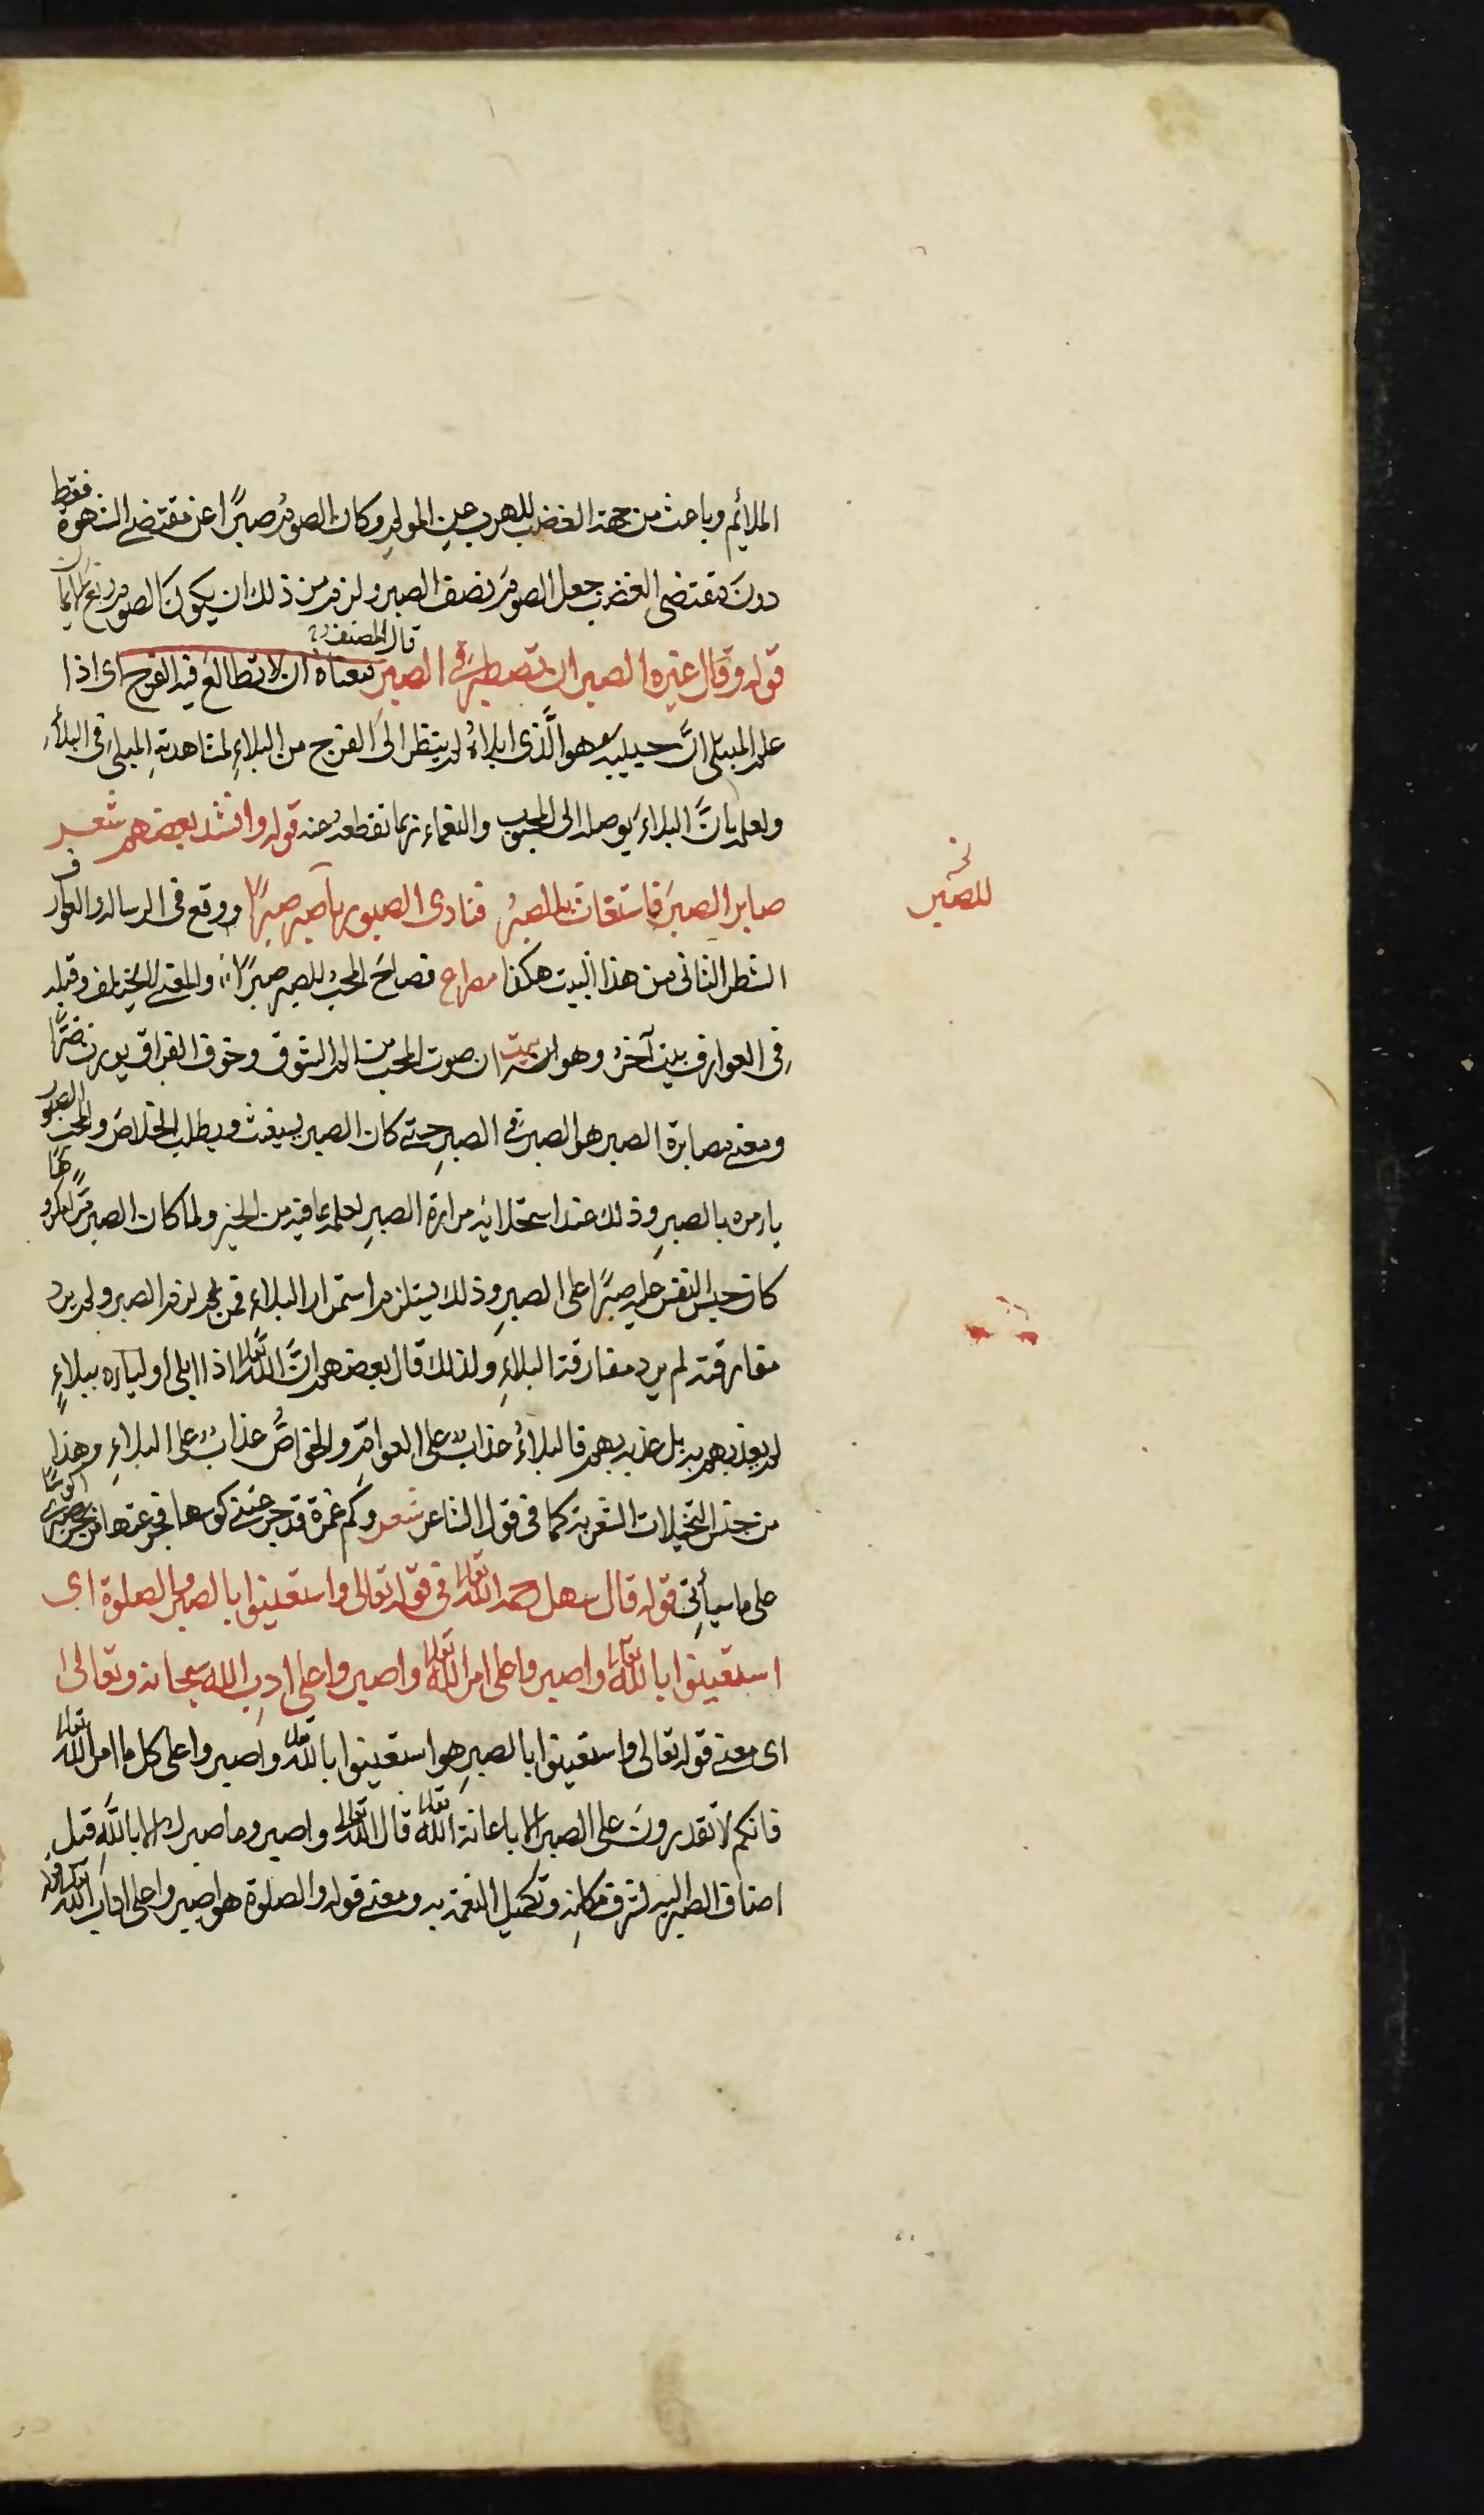 الملايم وباعث من جهة الغضب للهرب عن المولم وكان الصوم صبرًا عن مقتضى الشهوة فقط
دون مقتضى الغضب جعل الصوم نصف الصبر ولزم من ذلك ان يكون الصوم ربع الايمان
قوله وقال غيره الصبر ان تصطبر فى الصبر قال المصنف معناه ان لا تطالع فيه الفرج اى اذا
علم المبتلى انَّ حبيبه هو الَّذى ابلاهُ لم ينظر الى الفرج من البلاءِ لمشاهدتهِ المبلى فى البلاءِ
ولعلمه بانَّ البلاءَ يوصله الى المحبوب والنعماء ربما تقطعه عنه قوله وانشد بعضهم شعر
صابر الصبرَ فاستغاث به الصبرُ فنادى الصبور يا صبر صبرًا ووقع فى الرسالة والعوارف
الشطر الثانى من هذا البيت هكذا مصراع فصاح المحبُ للصبر صبرًا والمعنى لا يختلف وقبله
فى العوارف بيت آخرُ وهو بيت ان صوت المحب من الم الشوق وخوف الفراق يورث ضرًّا
ومعنى مصابرة الصبر هو الصبر فى الصبرِ حتى كان الصبر يستغيث ويطلب الخلاصَ والمحب الصبور
يامره بالصبرِ وذلك عند استحلائه مرارة الصبرِ لعلمه بما فيه من الخير ولما كان الصبر مرًّا مكروهًا
كان حبس النفس عليه صبرًا على الصبرِ وذلك يستلزم استمرار البلاءِ فمن لم يرد
مفارقته لم يرد مفارقة البلاءِ ولذلك قال بعضهم انَّ اللهَ تعالى اذا ابلى اولياءه ببلاءٍ
لم يعذبهم به بل عذبه بهم فالبلاءُ عذابٌ على العوامِّ والخواصُّ عذابٌ على البلاءِ وهذا
من جنس التخيلات الشعرية كما فى قول الشاعر شعر وكم غمرة قد جرعتنى كؤسها فجرعتها من بحر صبرى اكؤسًا
على ما سيأتى قوله قال سهل رحمه الله تعالى فى قوله تعالى واستعينوا بالصبر والصلوة اى
استعينوا بالله تعالى واصبروا على امر الله تعالى واصبروا على ادب الله سبحانه وتعالى
اى معنى قوله تعالى واستعينوا بالصبرِ هو استعينوا بالله تعالى واصبروا على كل ما امر الله تعالى
فانكم لا تقدرون على الصبر الا باعانة الله تعالى قال الله تعالى واصبر وما صبرك الا باللَّهِ قيل
اضاف الصبر اليه لشرف مكانهِ وتكميل النعمة به ومعنى قوله والصلوة هو اصبروا على اداب الله تعالى قوله
نخ
للصبر